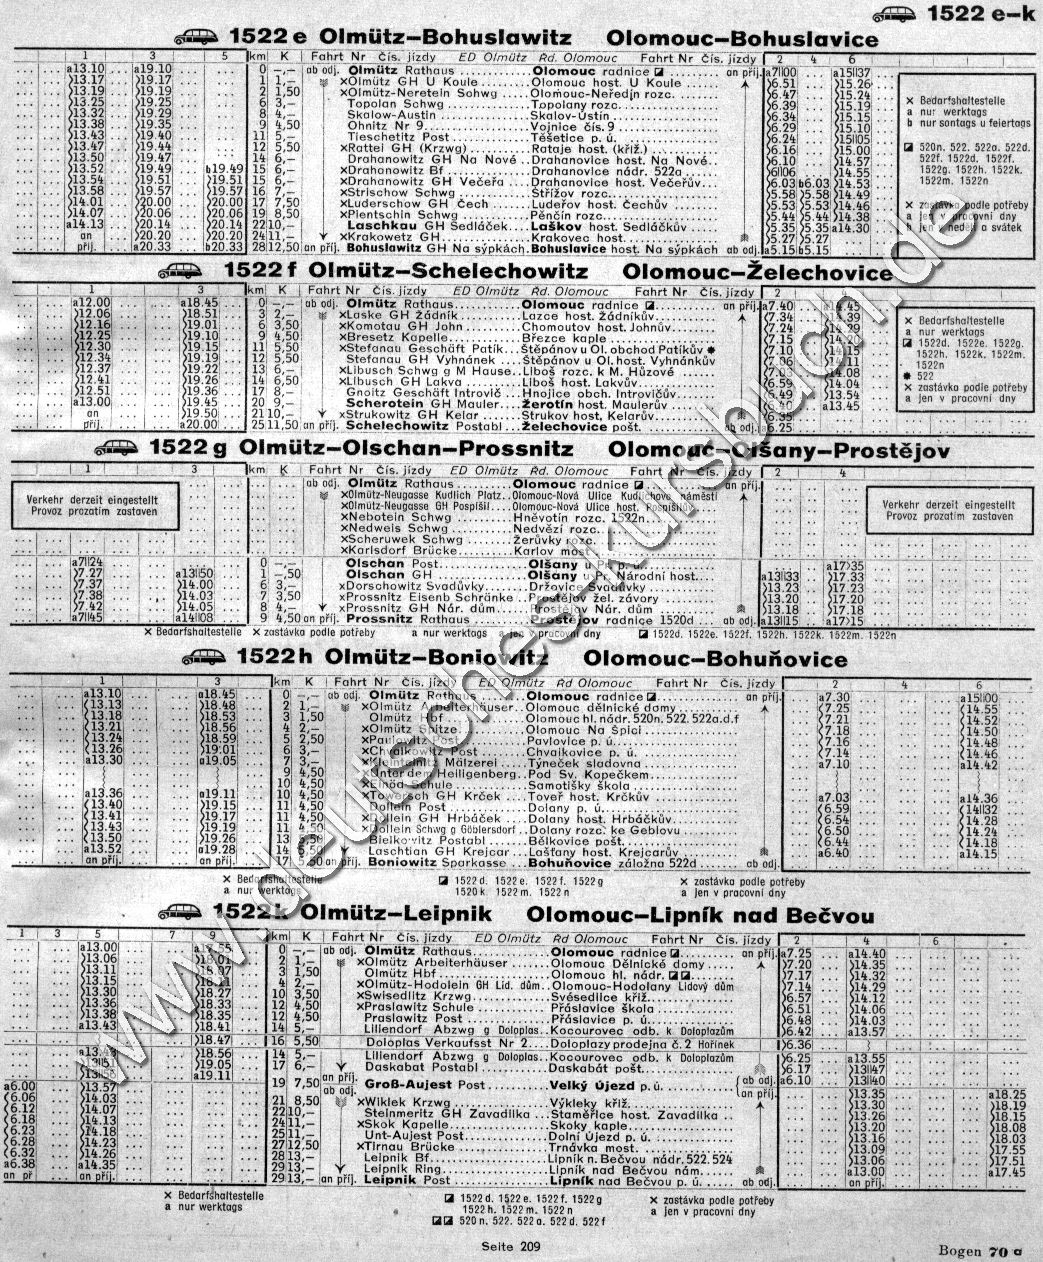 1522 e–k
1522 e Olmütz–Bohuslawitz Olomouc–Bohuslavice
1 3 5 km K Fahrt Nr Čís. jízdy ED Olmütz Rd. Olomouc Fahrt Nr Čís. jízdy 2 4 6
a13.10 a19.10 0 –,– ab odj. Olmütz Rathaus Olomouc radnice an příj. a7||00 a15||37
13.17 19.17 1 1,– ×Olmütz GH U Koule Olomouc host. U Koule 6.51 15.26
13.19 19.19 2 1,50 ×Olmütz-Neretein Schwg Olomouc-Neředín rozc. 6.47 15.24
13.25 19.25 6 3,– Topolan Schwg Topolany rozc. 6.39 15.19
13.32 19.29 8 4,– Skalow-Austin Skalov-Ústín 6.34 15.15
13.38 19.35 9 4,50 Ohnitz Nr 9 Vojnice čís. 9 6.29 15.10
13.43 19.40 11 5,– Tieschetitz Post Těšetice p. ú. 6.24 15||05
13.47 19.44 12 5,50 ×Rattei GH (Krzwg) Rataje host. (křiž.) 6.16 15.00
13.50 19.47 14 6,– Drahanowitz GH Na Nové Drahanovice host. Na Nové 6.10 14.57
13.52 19.49 b19.49 15 6,– ×Drahanowitz Bf Drahanovice nádr. 522a 6||06 14.55
13.54 19.51 19.51 15 6,– ×Drahanowitz GH Večeřa Drahanovice host. Večeřův 6.03 b6.03 14.53
13.58 19.57 19.57 16 7,– ×Strischow Schwg Střížov rozc. 5.58 5.58 14.49
14.01 20.00 20.00 17 7,50 ×Luderschow GH Čech Luděřov host. Čechův 5.53 5.53 14.46
14.07 20.06 20.06 19 8,50 ×Pientschin Schwg Pěnčín rozc. 5.44 5.44 14.38
a14.13 20.14 20.14 22 10,– Laschkau GH Sedláček Laškov host. Sedláčkův 5.35 5.35 a14.30
an 20.20 20.20 24 11,– ×Krakowetz GH Krakovec host 5.27 5.27
příj. a20.33 b20.33 28 12,50 an příj. Bohuslawitz GH Na sýpkách Bohuslavice host. Na sýpkách ab odj. a5.15 b5.15
× Bedarfshaltestelle
a nur werktags
b nur sontags u feiertags
520n. 522. 522a. 522d.
522f. 1522d. 1522f.
1522g. 1522h. 1522k.
1522m. 1522n
× zastávka podle potřeby
a jen v pracovní dny
b jen v neděli a svátek
1522 f Olmütz–Schelechowitz Olomouc–Želechovice
1 3 km K Fahrt Nr Čís. jízdy ED Olmütz Rd. Olomouc Fahrt Nr Čís. jízdy 2 4
a12.00 a18.45 0 –,– ab odj. Olmütz Rathaus Olomouc radnice an příj. a7.40 a14.45
12.06 18.51 3 2,– ×Laske GH Žádník Lazce host. Žádníkův 7.34 14.39
12.16 19.01 6 3,50 ×Komotau GH John Chomoutov host. Johnův 7.24 14.29
12.25 19.10 9 4,50 ×Bresetz Kapelle Březce kaple 7.15 14.20
12.30 19.15 11 5,50 ×Stefanau Geschäft Patík Štěpánov u Ol. obchod Patíkův 7.10
12.34 19.19 12 5,50 Stefanau GH Vyhnánek Štěpánov u Ol. host. Vyhnánkův
12.37 19.22 13 6,– ×Libusch Schwg g M Hause Liboš rozc. k M. Húzové 14.08
12.41 19.26 14 6,50 ×Libusch GH Lakva Liboš host. Lakvův 6.59 14.04
12.51 19.36 17 8,– Gnoitz Geschäft Introvič Hnojice obch. Introvičův 6.49 13.54
a13.00 19.45 20 9,– Scherotein GH Mauler Žerotín host. Maulerův 6.40 a13.45
an 19.50 21 10,– ×Strukowitz GH Kelar Strukov host. Kelarův 6.35
příj. a20.00 25 11,50 an příj. Schelechowitz Postabl Želechovice pošt. ab odj. a6.25
× Bedarfshaltestelle
a nur werktags
1522d. 1522e. 1522g.
1522h. 1522k. 1522m.
1522n
✱ 522
× zastávka podle potřeby
a jen v pracovní dny
1522 g Olmütz–Olschan–Prossnitz Olomouc–Olšany–Prostějov
1 3 km K Fahrt Nr Čís. jízdy ED Olmütz Rd. Olomouc Fahrt Nr Čís. jízdy 2 4
Verkehr derzeit eingestellt
Provoz prozatím zastaven
ab odj. Olmütz Rathaus Olomouc radnice an příj.
×Olmütz-Neugasse Kudlich Platz Olomouc-Nová Ulice Kudlichovo náměstí
×Olmütz-Neugasse GH Pospíšil Olomouc-Nová Ulice host. Pospíšilův
×Nebotein Schwg Hněvotín rozc. 1522n
×Nedweis Schwg Nedvězí rozc.
×Scheruwek Schwg Žerůvky rozc.
×Karlsdorf Brücke Karlov most
Verkehr derzeit eingestellt
Provoz prozatím zastaven
a7||24 0 –,– Olschan Post Olšany u Pr. p. ú. a17||35
7.27 a13||50 1 –,50 Olschan GH Olšany u Pr. Národní host. a13||33 17.33
7.37 14.00 6 3,– ×Dorschowitz Svadůvky Držovice Svadůvky 13.23 17.23
7.38 14.03 7 3,50 ×Prossnitz Eisenb Schränke Prostějov žel. závory 13.20 17.20
7.42 14.05 8 4,– ×Prossnitz GH Nár. dům Prostějov Nár. dům 13.18 17.18
a7||45 a14||08 9 4,50 an příj. Prossnitz Rathaus Prostějov radnice 1520d ab odj. a13||15 a17||15
× Bedarfshaltestelle × zastávka podle potřeby a nur werktags a jen v pracovní dny 1522d. 1522e. 1522f. 1522h. 1522k. 1522m. 1522n
1522 h Olmütz–Boniowitz Olomouc–Bohuňovice
1 3 km K Fahrt Nr Čís. jízdy ED Olmütz Rd Olomouc Fahrt Nr Čís. jízdy 2 4 6
a13.10 a18.45 0 –,– ab odj. Olmütz Rathaus Olomouc radnice an příj. a7.30 a15||00
13.13 18.48 2 1,– ×Olmütz Arbeiterhäuser Olomouc dělnické domy 7.25 14.55
13.18 18.53 3 1,50 Olmütz Hbf Olomouc hl. nádr. 520n. 522. 522a.d.f 7.21 14.52
13.21 18.56 4 2,– Olmütz Spitze Olomouc Na Špici 7.18 14.50
13.24 18.59 5 2,50 ×Pawlowitz Post Pavlovice p. ú. 7.16 14.48
13.26 19.01 6 3,– ×Chwalkowitz Post Chvalkovice p. ú. 7.14 14.46
a13.30 a19.05 7 3,– ×Kleinteinitz Mälzerei Týneček sladovna a7.10 a14.42
9 4,50 ×Unter den Heiligenberg Pod Sv. Kopečkem
10 4,50 ×Einöd Schule Samotišky škola
a13.36 a19.11 10 4,50 ×Towersch GH Krček Toveř host. Krčkův a7.03 a14.36
13.40 19.15 11 4,50 Dollein Post Dolany p. ú. 6.59 14||32
13.41 19.17 11 4,50 ×Dollein GH Hrbáček Dolany host. Hrbáčkův 6.54 14.28
13.43 19.19 11 4,50 Dollein Schwg g Göblersdorf Dolany rozc. ke Geblovu 6.50 14.24
13.50 19.26 13 5,50 Bielkowitz Postabl Bělkovice pošt. 6.44 14.18
a13.52 a19.28 14 5,50 Laschtian GH Krejcar Lašťany host. Krejcarův a6.40 a14.15
an příj. an příj. 17 5,50 an příj. Boniowitz Sparkasse Bohuňovice záložna 522d ab odj.
× Bedarfshaltestelle 1522 d. 1522 e. 1522 f. 1522 g × zastávka podle potřeby
a nur werktags 1520 k. 1522 m. 1522 n a jen v pracovní dny
1522 k Olmütz–Leipnik Olomouc–Lipník nad Bečvou
1 3 5 7 9 km K Fahrt Nr Čís. jízdy ED Olmütz Rd Olomouc Fahrt Nr Čís. jízdy 2 4 6
a13.00 a17.55 0 –,– ab odj. Olmütz Rathaus Olomouc radnice an příj. a7.25 a14.40
13.06 18.01 2 1,– ×Olmütz Arbeiterhäuser Olomouc Dělnické domy 7.20 14.35
13.11 18.07 3 1,50 Olmütz Hbf Olomouc hl. nádr. 7.17 14.32
13.15 18.11 4 2,– ×Olmütz-Hodolein GH Lid. dům Olomouc-Hodolany Lidový dům 7.14 14.29
13.30 18.27 10 3,50 ×Swisedlitz Krzwg Svésedlice křiž. 6.57 14.12
13.36 18.33 12 4,50 ×Praslawitz Schule Přáslavice škola 6.51 14.06
13.38 18.35 12 4,50 Praslawitz Post Přáslavice p. ú. 6.48 14.03
a13.43 18.41 14 5,– Liliendorf Abzwg g Doloplas Kocourovec odb. k Doloplazům 6.42 a13.57
18.47 16 5,50 Doloplas Verkaufsst Nr 2 Doloplazy prodejna č. 2 Hořínek 6.36
a13.43 18.56 14 5,– Liliendorf Abzwg g Doloplas Kocourovec odb. k Doloplazům 6.25 a13.55
19.05 17 6,– Daskabat Postabl Daskabát pošt. 6.17 13||47
a19.11 19 7,50 an příj. ab odj. Groß-Aujest Post Velký Újezd p. ú. ab odj. an příj. a6.10 13||40
a6.00 13.57 13.35 a18.25
6.06 14.03 21 8,50 ×Wiklek Krzwg Výkleky křiž. 13.30 18.19
6.12 14.07 22 10,– Steinmeritz GH Zavadilka Staměřice host. Zavadilka 13.26 18.15
6.18 14.13 24 11,– ×Skok Kapelle Skoky kaple 13.20 18.08
6.23 14.18 25 11,– Unt-Aujest Post Dolní Újezd p. ú. 13.16 18.03
6.28 14.23 27 12,50 ×Tirnau Brücke Trnávka most. 13.09 17.55
6.32 14.26 28 13,– Leipnik Bf. Lipník n. Bečvou nádr. 522. 524 13.06 17.51
a6.38 a14.35 29 13,– Leipnik Ring Lipník nad Bečvou nám. a13.00 a17.45
an př an příj. 29 13,– an příj. Leipnik Post Lipník nad Bečvou p. ú. ab odj. an příj.
× Bedarfshaltestelle 1522 d. 1522 e. 1522 f. 1522 g × zastávka podle potřeby
a nur werktags 1522 h. 1522 m. 1522 n a jen v pracovní dny
520 n. 522. 522 a. 522 d. 522 f
Seite 209
Bogen 70 a
www.deutsches-kursbuch.de